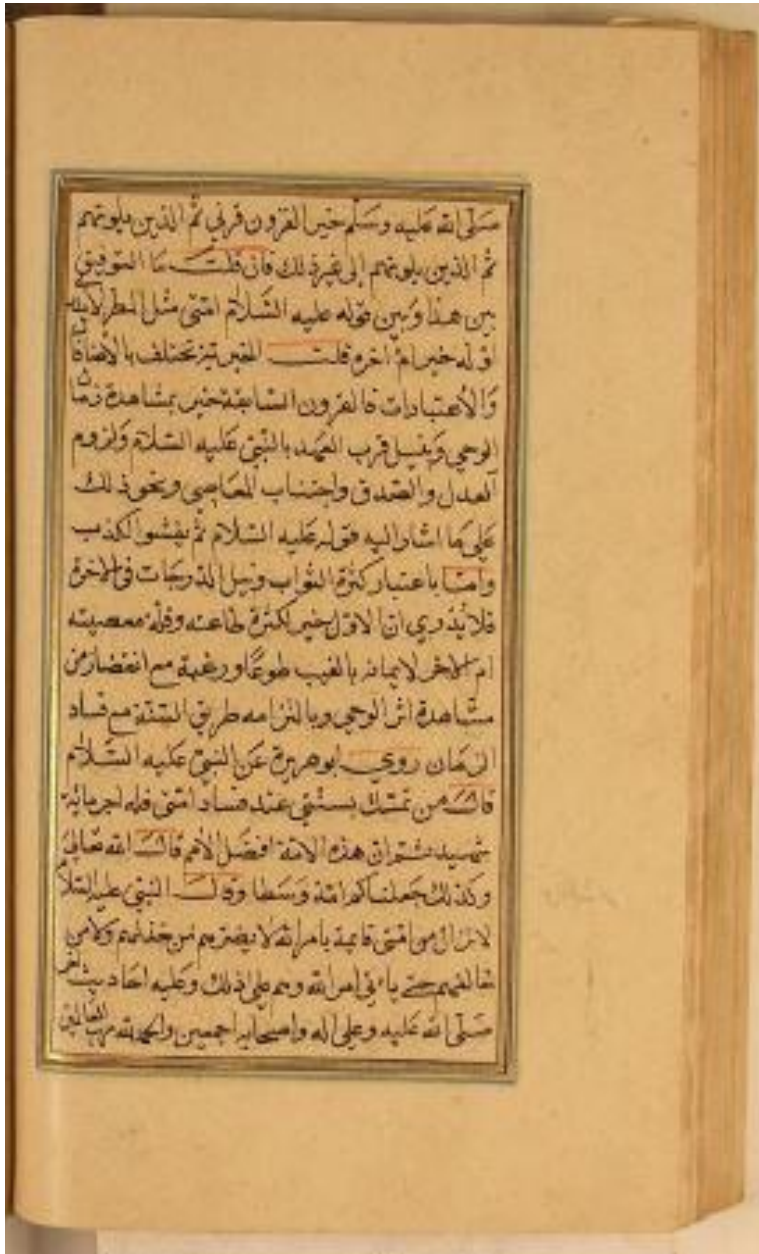 صلى الله عليه وسلم خير القرون قرني ثم الذين يلونهم
ثم الذين يلونهم إلى غير ذلك فان قلت ما التوفيق
بين هذا وبين قوله عليه السلام امتي مثل المطر لا يدرى
اوله خير ام اخره قلت الخيرية تختلف بالاضافات
والاعتبارات فالقرون السابقة خير بمشاهدة زمان
الوحي وبنيل قرب العهد بالنبي عليه السلام ولزوم
العدل والصدق واجتناب المعاصي ونحو ذلك
على ما اشار اليه قوله عليه السلام ثم يفشوا الكذب
واما باعتبار كثرة الثواب ونيل الدرجات في الاخرة
فلا يدري ان الاول خير لكثرة طاعته وقلة معصيته
ام الاخر لايمانه بالغيب طوعا ورغبة مع انقضاء زمن
مشاهدة اثر الوحي وبالتزامه طريق السنة مع فساد
الزمان روي ابو هريرة عن النبي عليه السلام
قال من تمسك بسنتي عند فساد امتي فله اجر ماية
شهيد ثم ان هذه الامة افضل الامم قال الله تعالى
وكذلك جعلناكم امة وسطا وقال النبي عليه السلام
لا تزال من امتي قايمة بامر الله لا يضرهم من خذلهم ولا من
خالفهم حتى ياتي امر الله وهم على ذلك وعليه احاديث اخر
صلى الله عليه وعلى اله واصحابه اجمعين والحمد لله رب العالمين